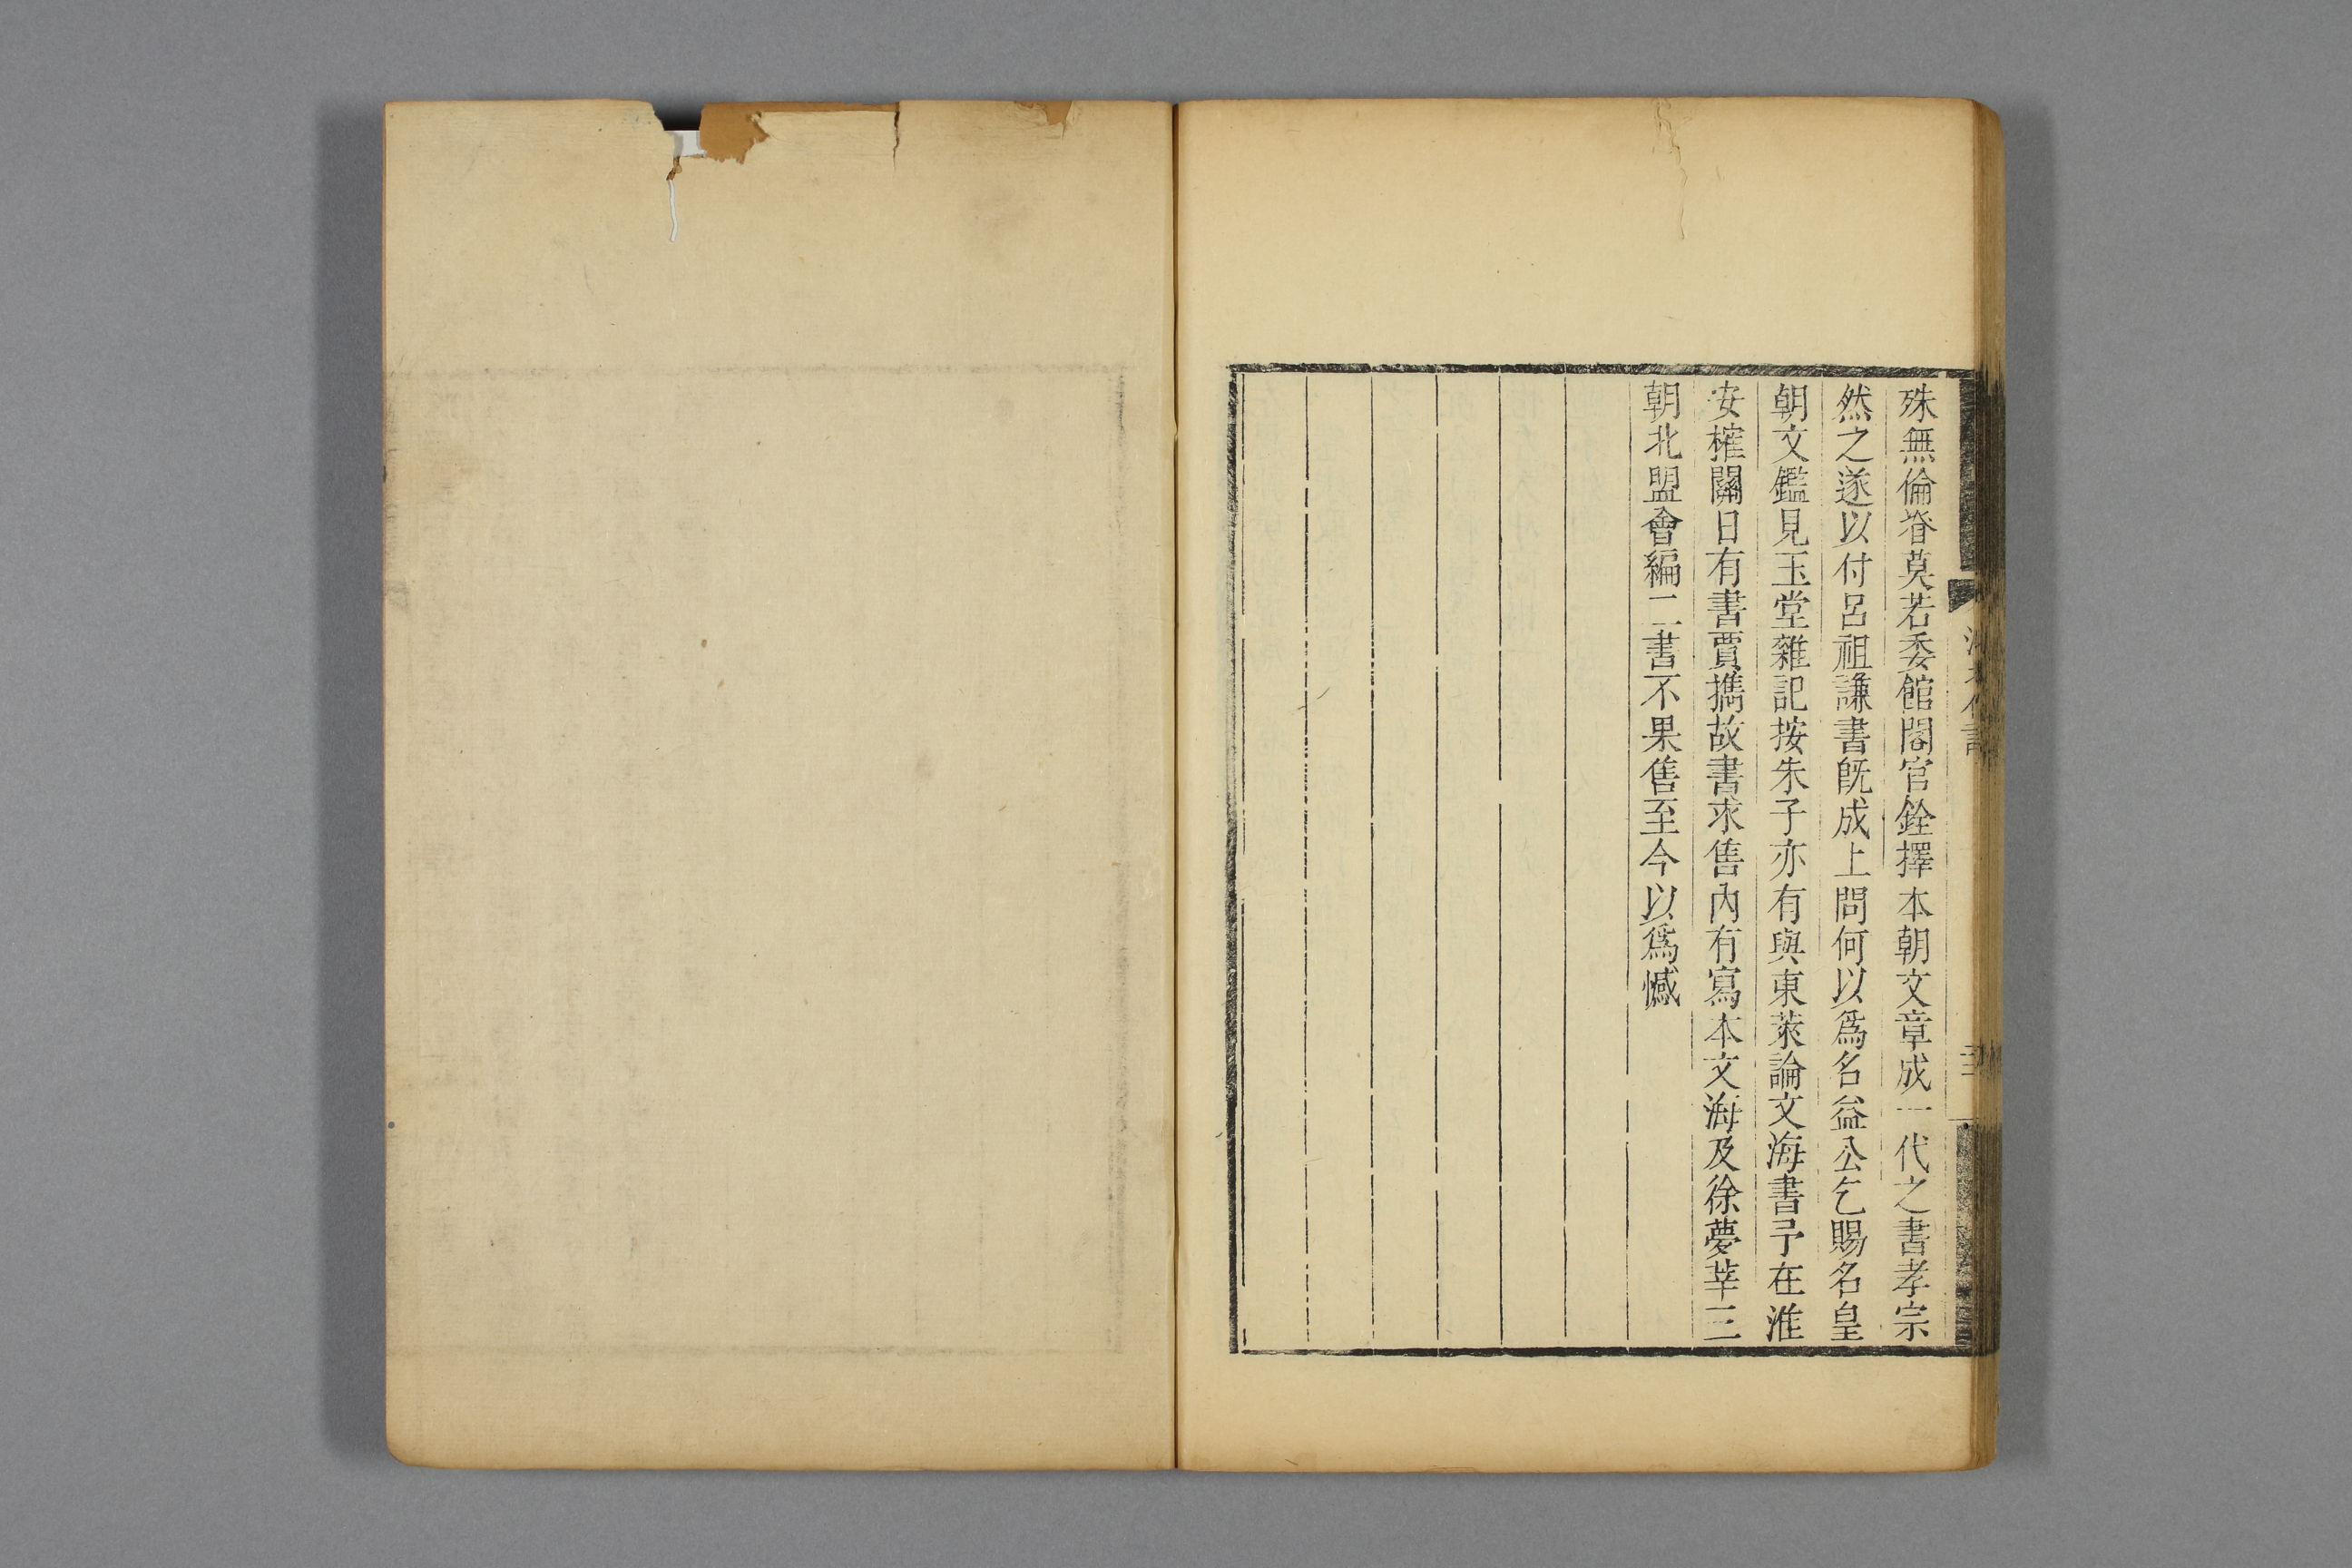 殊無倫脊莫若委館閣官銓擇本朝文章成一代之書孝宗
然之遂以付呂祖謙書旣成上問何以爲名益公乞賜名皇
朝文鑑見玉堂雜記按朱子亦有與東萊論文海書予在淮
安榷關日有書賈攜故書求售內有寫本文海及徐夢莘三
朝北盟會編二書不果售至今以爲憾